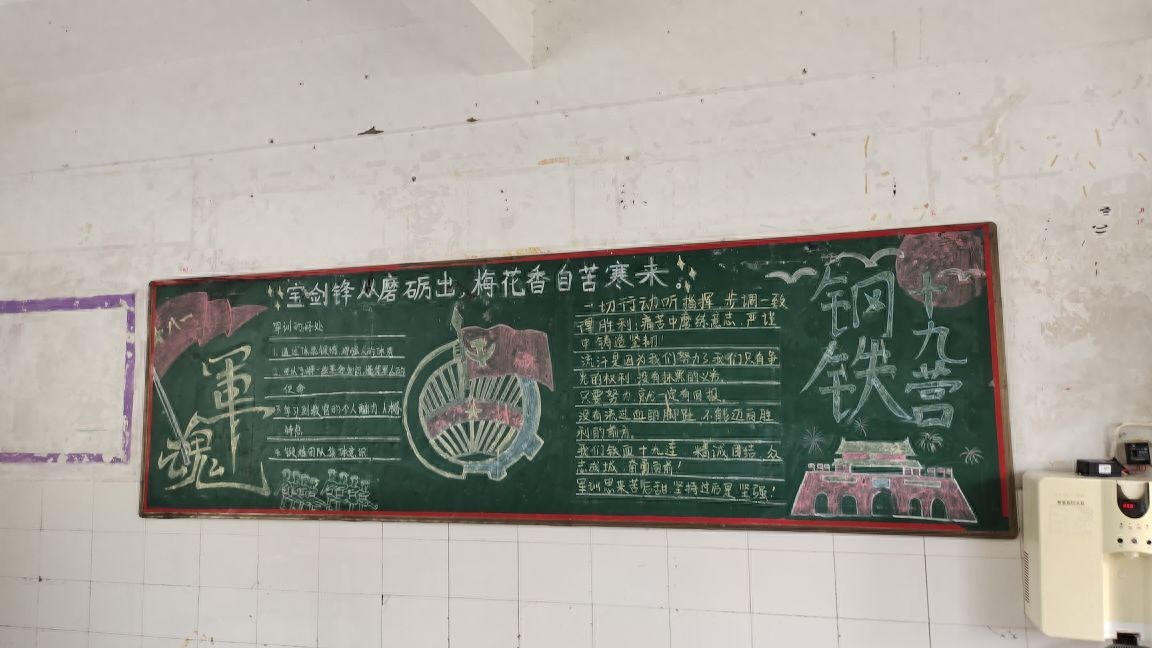 宝剑锋从磨砺出,梅花香自苦寒来。
八一
軍魂
军训的好处
使命
3.学习到教官的个人魅力人格
特点
4.锻炼团队集体意识
一切行动听指挥 步调一致
得胜利,痛苦中磨练意志,严谨
中铸造坚韧!
流汗是因为我们努力了我们只有争
光的权利,没有抹黑的义务。
只要努力,就一定有回报。
没有流过血的脚趾,不能迈向胜
利的前方。
我们铁血十九连 精诚团结,众
志成城,奋勇向前!
军训思来苦后甜 坚持过后是坚强!
钢铁
十九营